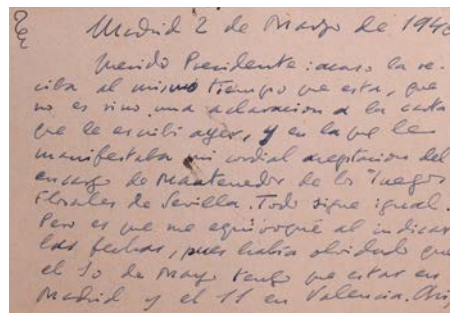 Madrid 2 de Marzo de 194
Querido Presidente: acaso la re-
ciba al mismo tiempo que esta, que
no es sino una aclaracion a la carta
que le escribí ayer, y en la que le
manifestaba mi cordial aceptacion del
encargo de Mantenedor de los "Juegos
Florales de Sevilla. Todo sigue igual.
Pero es que me equivoqué al indicar
las fechas, pues había olvidado que
el 10 de Mayo tengo que estar en
Madrid y el 11 en Valencia.